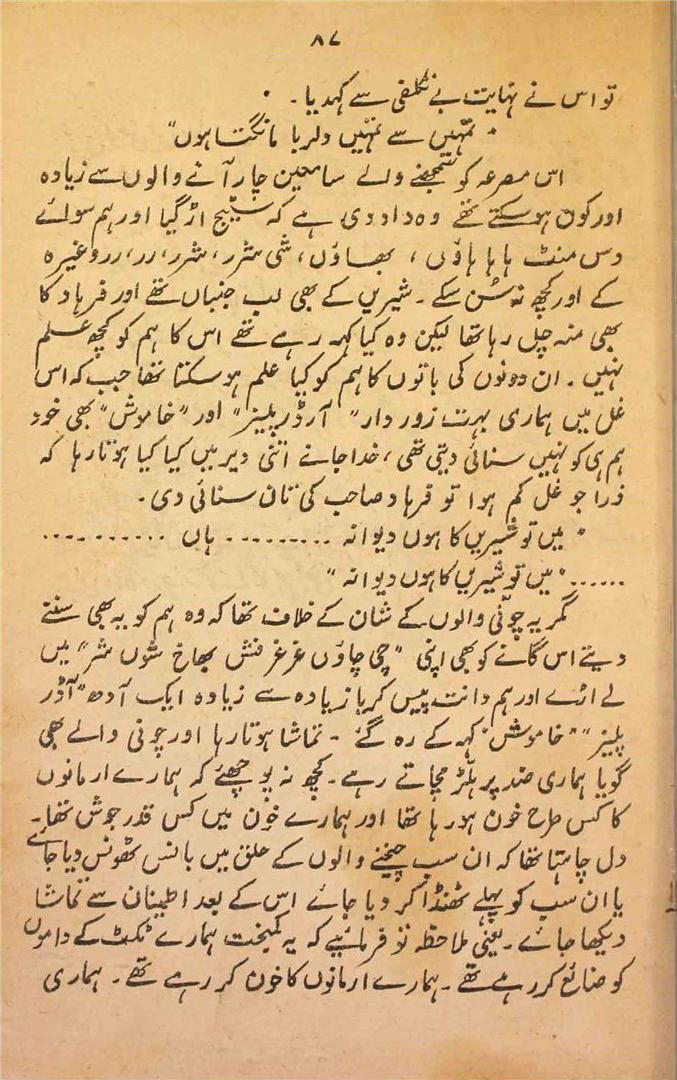 ۸۷
تو اس نے نہایت بے تکلفی سے کہدیا۔
"تمہیں سے تمہیں دلربا مانگتا ہوں"
اس مصرعہ کو سمجھنے والے سامعین چار آنے والوں سے زیادہ
اور کون ہو سکتے تھے وہ داد دی ہے کہ سٹیج اڑ گیا اور ہم سوائے
دس منٹ ہا ہا ہاؤں، بھاؤں، شی شرر، شرر، رر، ررو غیرہ
کے اور کچھ نہ سُن سکے۔ شیریں کے بھی لب جنباں تھے اور فرہاد کا
بھی منہ چل رہا تھا لیکن وہ کیا کہہ رہے تھے اس کا ہم کو کچھ علم
نہیں۔ ان دونوں کی باتوں کا ہم کو کیا علم ہو سکتا تھا جب کہ اس
غل میں ہماری بہت زور دار "آرڈر پلیز" اور "خاموش" بھی خود
ہم ہی کو نہیں سنائی دیتی تھی، خدا جانے اتنی دیر میں کیا کیا ہوتا رہا کہ
ذرا جو غل کم ہوا تو فرہاد صاحب کی تان سنائی دی۔
"میں تو شیریں کا ہوں دیوانہ ......... ہاں ...........
......"میں تو شیریں کا ہوں دیوانہ"
مگر یہ چونّی والوں کے شان کے خلاف تھا کہ وہ ہم کو یہ بھی سننے
دیتے اس گانے کو بھی اپنی "چی چاؤں غرغرفنش بھاخ شوں شر" میں
لے اڑے اور ہم دانت پیس کر یا زیادہ سے زیادہ ایک آدھ "آڈر
پلیز" "خاموش" کہہ کے رہ گئے۔ تماشا ہوتا رہا اور چونی والے بھی
گویا ہماری ضد پر ہلّڑ مچاتے رہے۔ کچھ نہ پوچھئے کہ ہمارے ارمانوں
کا کس طرح خون ہو رہا تھا اور ہمارے خون میں کس قدر جوش تھا۔
دل چاہتا تھا کہ ان سب چیخنے والوں کے حلق میں بانس ٹھونس دیا جائے
یا ان سب کو پہلے ٹھنڈا کر دیا جائے اس کے بعد اطینان سے تماشا
دیکھا جائے۔ یعنی ملاحظہ تو فرمائیے کہ یہ کمبخت ہمارے ٹکٹ کے داموں
کو ضائع کر رہے تھے۔ ہمارے ارمانوں کا خون کر رہے تھے۔ ہماری